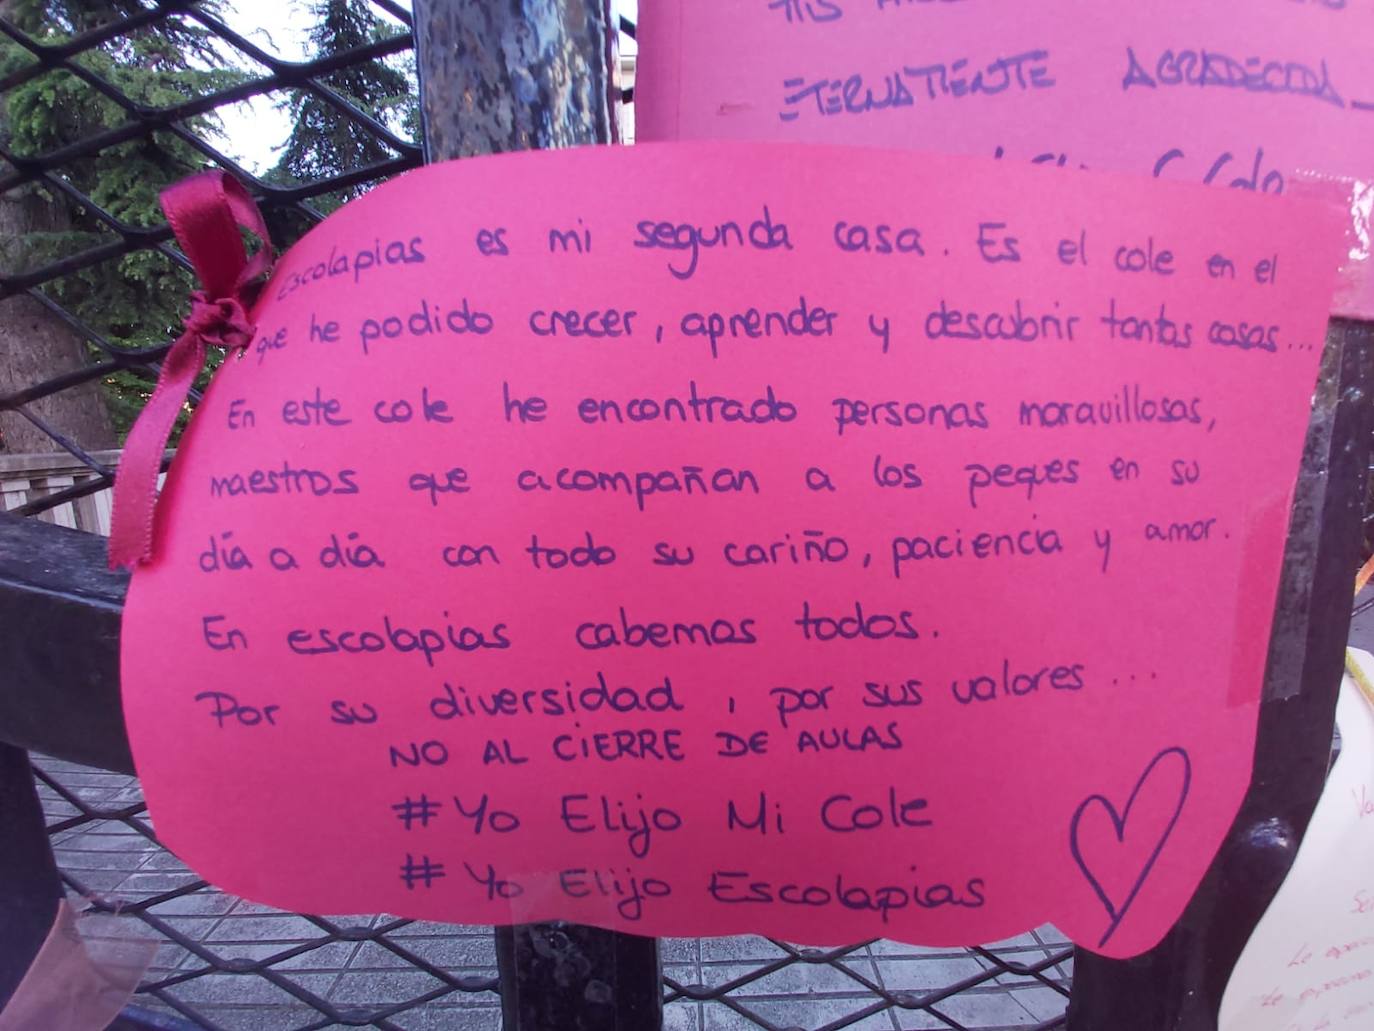 ETERNAMENTE AGRADECIDA
Escolapias es mi segunda casa. Es el cole en el
que he podido crecer, aprender y descubrir tantas cosas...
En este cole he encontrado personas maravillosas,
maestros que acompañan a los peques en su
día a día con todo su cariño, paciencia y amor.
En escolapias cabemos todos.
Por su diversidad, por sus valores...
NO AL CIERRE DE AULAS
#Yo Elijo Mi Cole
#Yo Elijo Escolapias